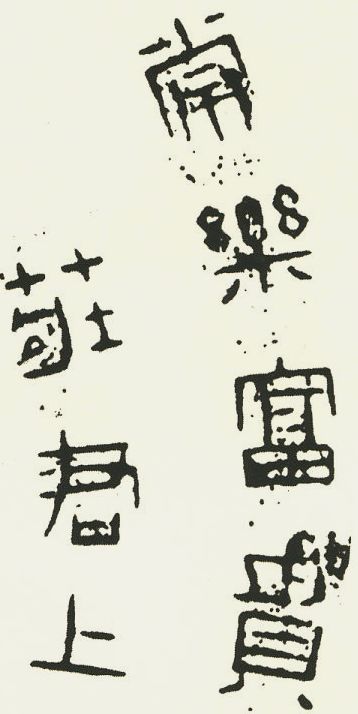 常樂富貴
莊君上